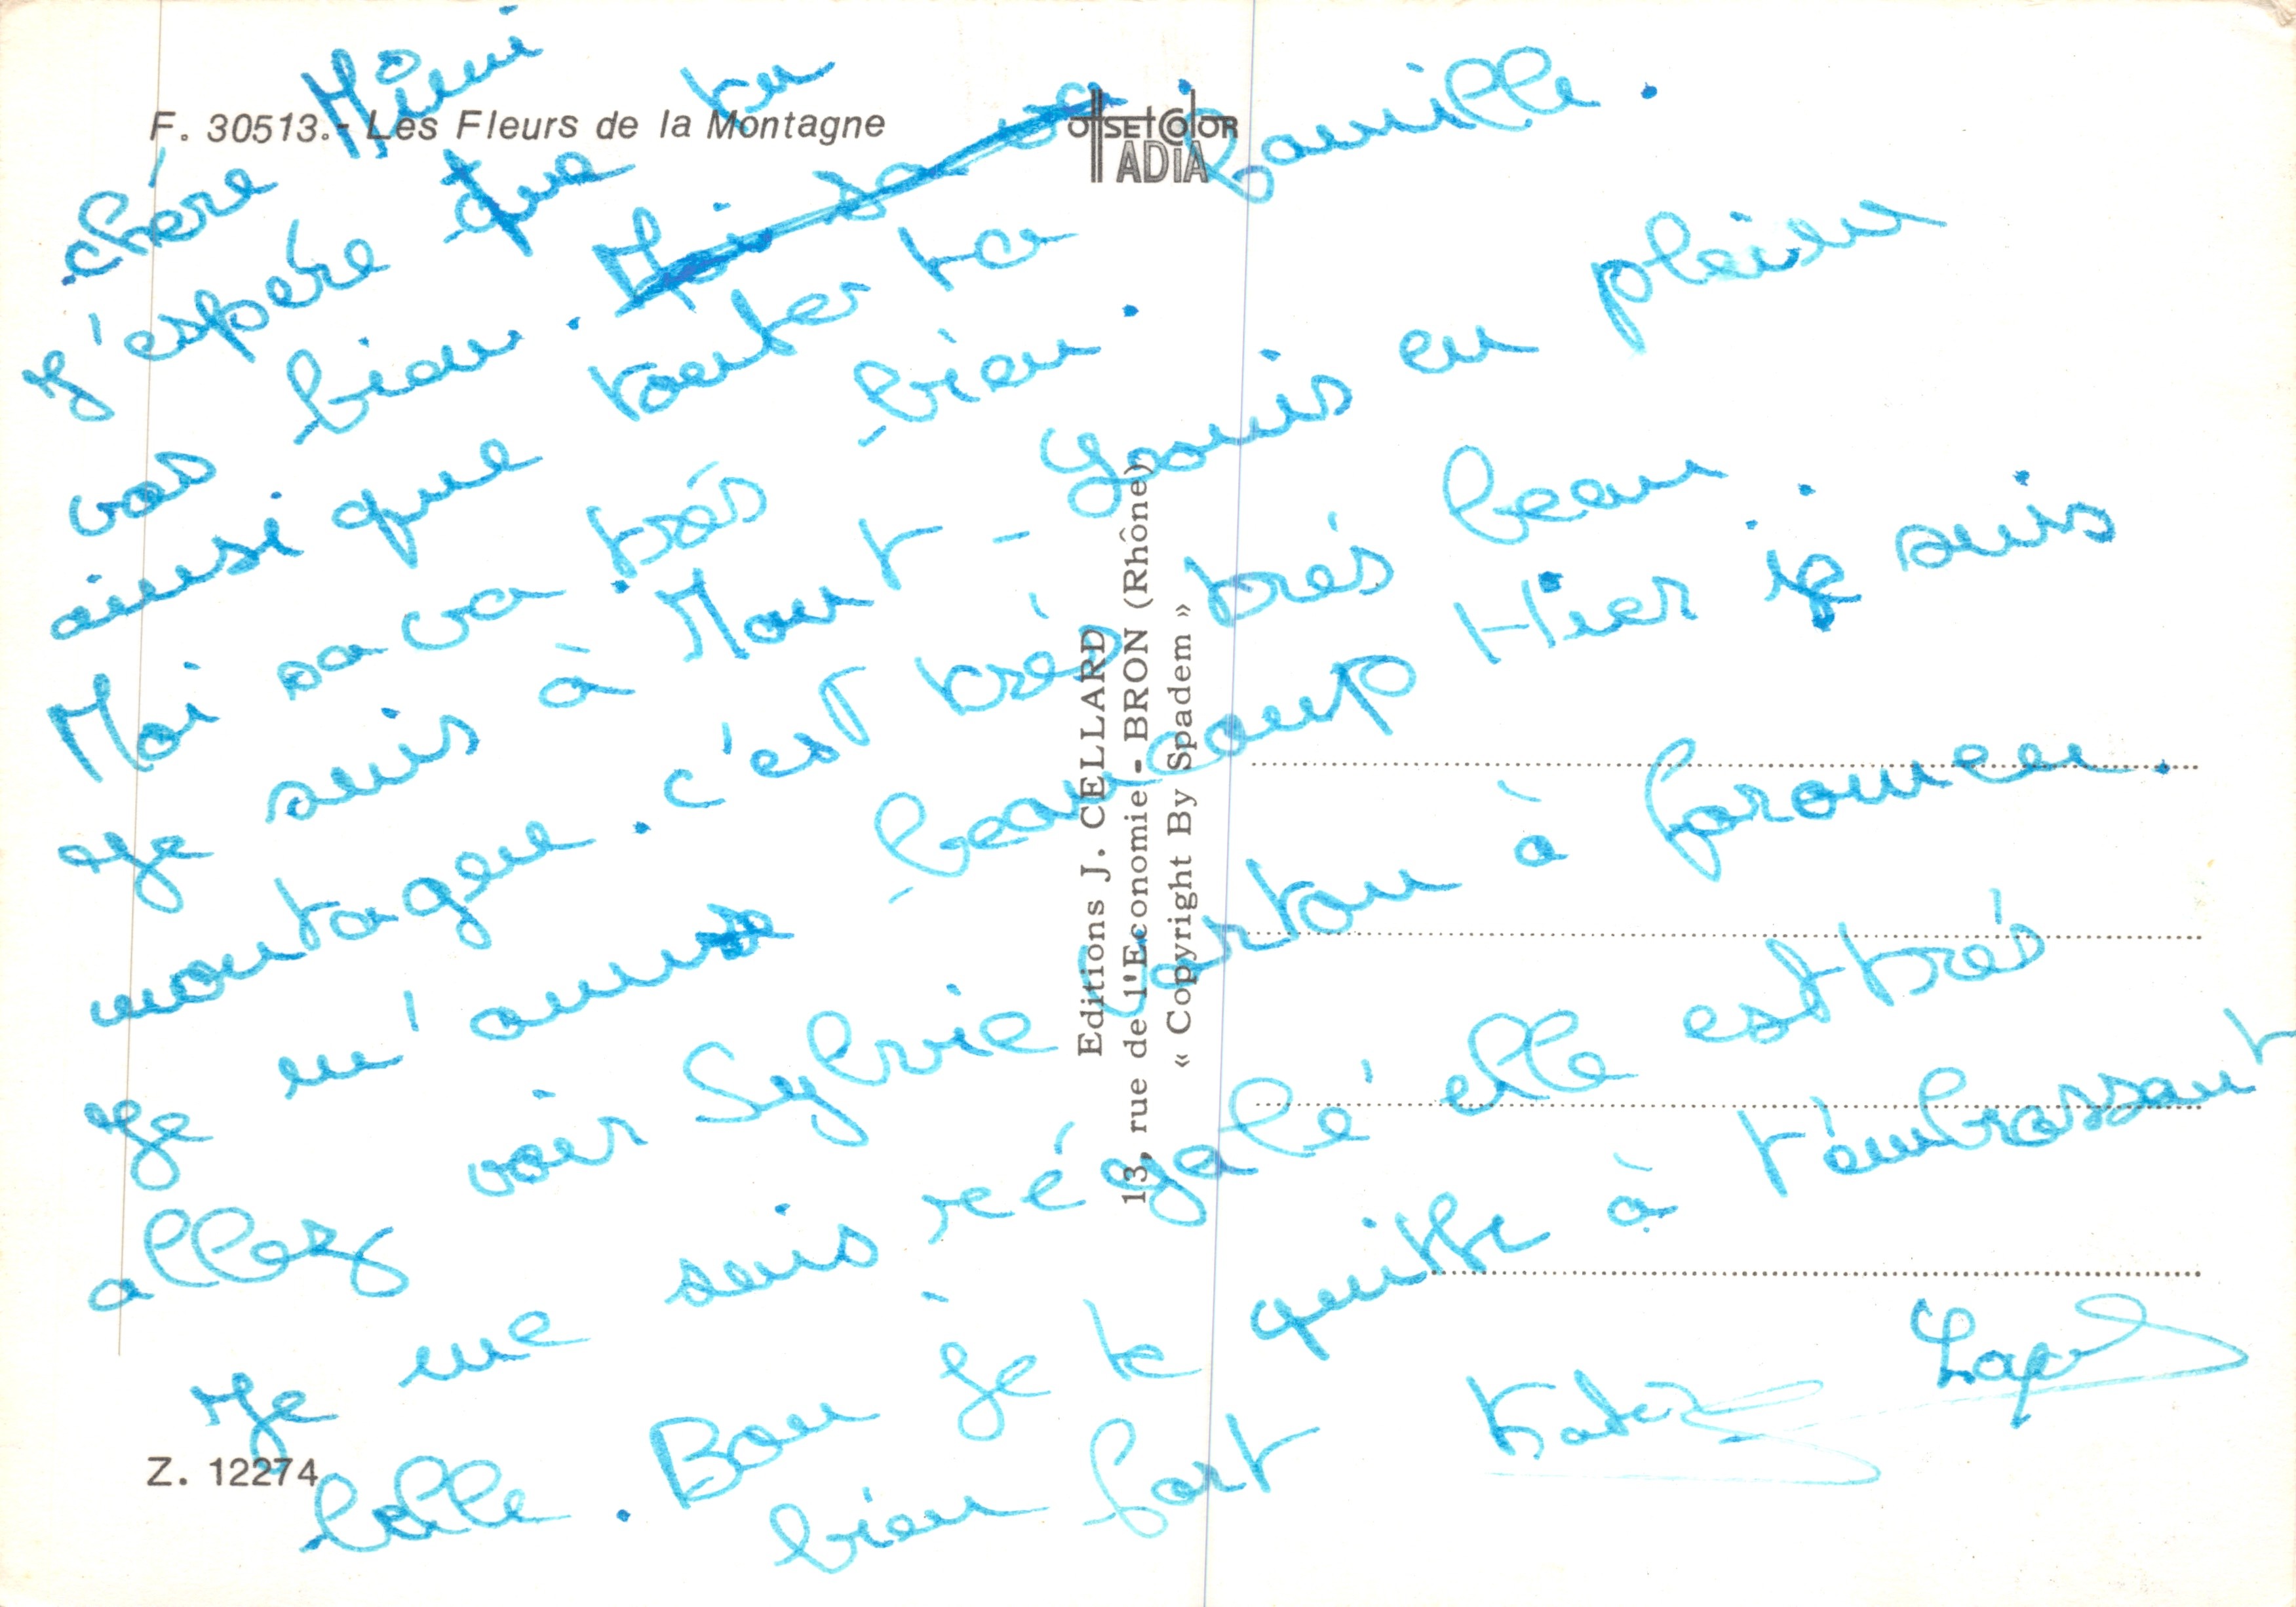 F. 30513.- Les Fleurs de la Montagne
OFFSET COLOR
ADIA
chère Mimi
j'espère que tu
vas bien. Moi sa va
ainsi que toute ta famille.
Moi sa va très bien.
Je suis à Mont-Louis en pleine
montagne. c'est très très beau.
Je m'amuse beaucoup Hier je suis
allez voir Sylvie Vartan à
Je me suis reégalé elle est très
belle. Bon je te quitte à t'embrassant
bien fort
Editions J. CELLARD
13, rue de l'Economie - BRON (Rhône)
« Copyright By Spadem »
Z. 12274